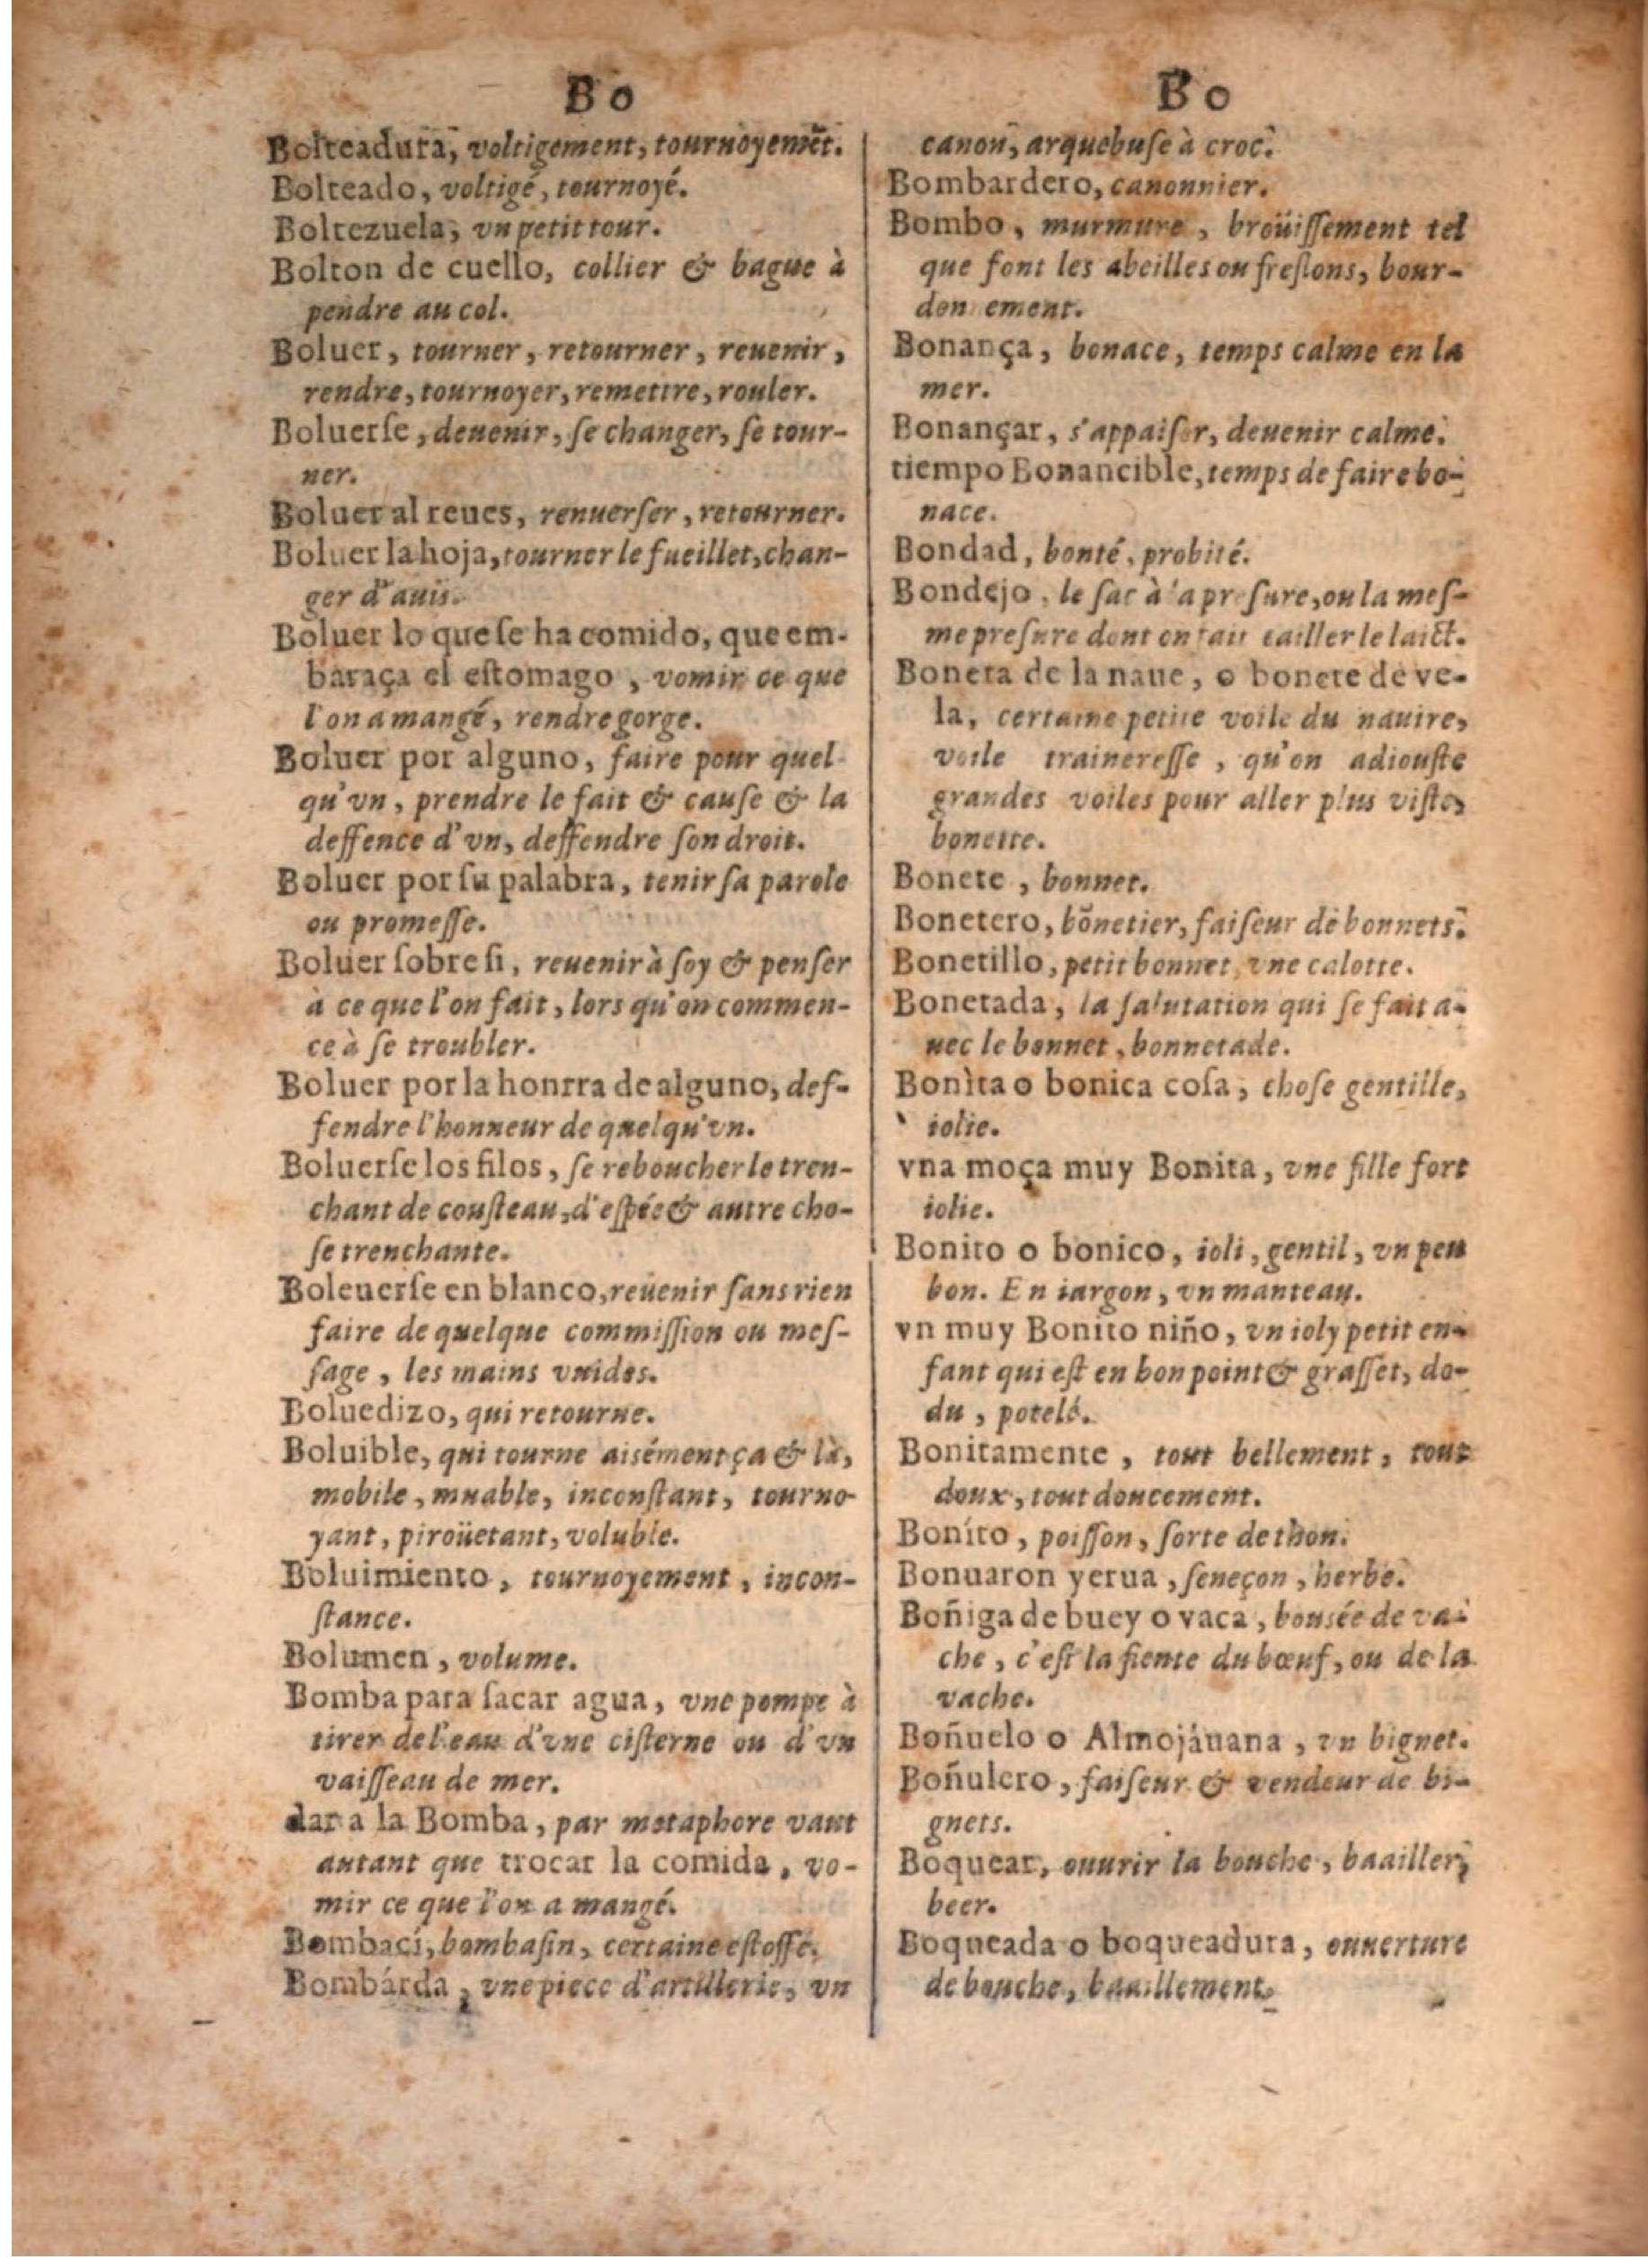 Bo
Bolteadura, voltigement, tournoyemẽt.
Bolteado, voltigé, tournoyé.
Boltezuela, vn petit tour.
Bolton de cuello, collier & bague à
pendre au col.
Boluer, tourner, retourner, reuenir,
rendre, tournoyer, remettre, rouler.
Boluerſe, deuenir, ſe changer, ſe tour-
ner.
Boluer al reues, renuerſer, retourner.
Boluer la hoja, tourner le fueillet, chan-
ger d'auis.
Boluer lo que ſe ha comido, que em-
baraça el eſtomago, vomir ce que
l'on a mangé, rendre gorge.
Boluer por alguno, faire pour quel
qu'vn, prendre le fait & cauſe & la
deffence d'vn, deffendre ſon droit.
Boluer por ſu palabra, tenir ſa parole
ou promeſſe.
Boluer ſobre ſi, reuenir à ſoy & penſer
à ce que l'on fait, lors qu'on commen-
ce à ſe troubler.
Boluer por la honrra de alguno, def-
fendre l'honneur de quelqu'vn.
Boluerſe los filos, ſe reboucher le tren-
chant de couſteau, d'eſpée & autre cho-
ſe trenchante.
Boleuerſe en blanco, reuenir ſans rien
faire de quelque commiſſion ou meſ-
ſage, les mains vuides.
Boluedizo, qui retourne.
Boluible, qui tourne aisément ça & là,
mobile, muable, inconſtant, tourno-
yant, piroüetant, voluble.
Boluimiento, tournoyement, incon-
ſtance.
Bolumen, volume.
Bomba para ſacar agua, vne pompe à
tirer de l'eau d'vne ciſterne ou d'vn
vaiſſeau de mer.
dar a la Bomba, par metaphore vaut
autant que trocar la comida, vo-
mir ce que l'on a mangé.
Bombací, bombaſin, certaine eſtoffe.
Bombárda, vne piece d'artillerie, vn
Bo
canon, arquebuſe à croc.
Bombardero, canonnier.
Bombo, murmure, broüiſſement tel
que font les abeilles ou freſlons, bour-
don ement.
Bonança, bonace, temps calme en la
mer.
Bonançar, s'appaiſer, deuenir calme.
tiempo Bonancible, temps de faire bo-
nace.
Bondad, bonté, probité.
Bondejo, le ſac à la preſure, ou la meſ-
me preſure dont on fait cailler le laict.
Boneta de la naue, o bonete de ve-
la, certaine petite voile du nauire,
voile traineresſe, qu'on adiouſte
grandes voiles pour aller plus viſte,
bonette.
Bonete, bonnet.
Bonetero, bõnetier, faiſeur de bonnets.
Bonetillo, petit bonnet, vne calotte.
Bonetada, la ſalutation qui ſe fait a-
uec le bonnet, bonnetade.
Bonita o bonica coſa, choſe gentille,
iolie.
vna moça muy Bonita, vne fille fort
iolie.
Bonito o bonico, ioli, gentil, vn peu
bon. En iargon, vn manteau.
vn muy Bonito niño, vn ioly petit en-
fant qui eſt en bon point & graſſet, do-
du, potelé.
Bonitamente, tout bellement, tout
doux, tout doucement.
Boníto, poiſſon, ſorte de thon.
Bonuaron yerua, ſeneçon, herbe.
Boñiga de buey o vaca, bousée de va-
che, c'eſt la fiente du bœuf, ou de la
vache.
Boñuelo o Almojáuana, vn bignet.
Boñulero, faiſeur & vendeur de bi-
gnets.
Boquear, ouurir la bouche, baailler,
beer.
Boqueada o boqueadura, ouuerture
de bouche, baaillement.